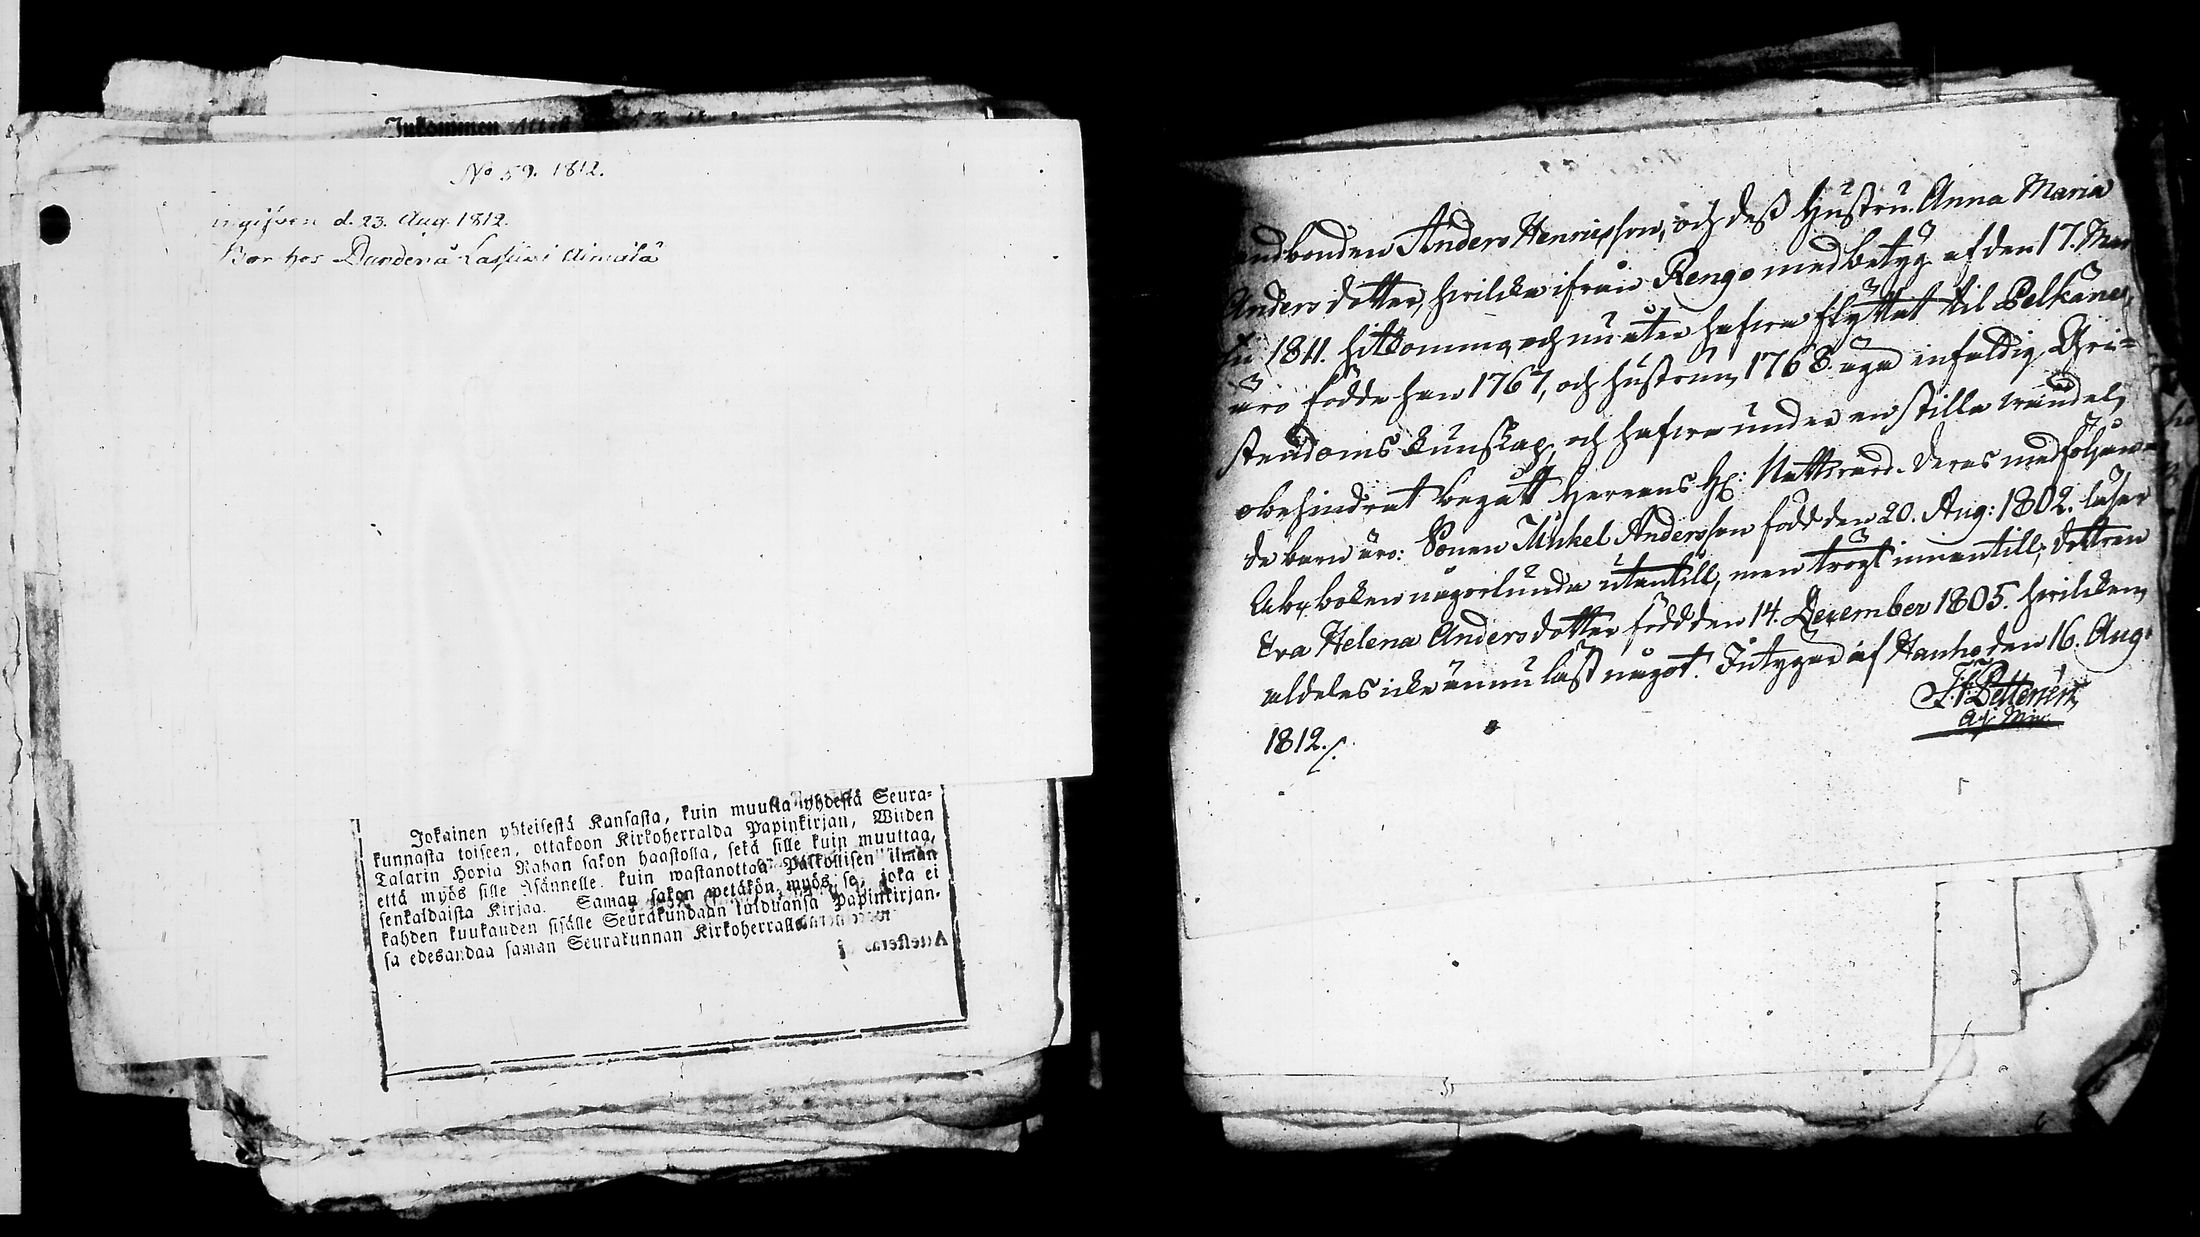 Inkommen
No 59. 1812.
ingifven d. 23. Aug. 1812.
Bor hos Bonden å Laskuri Aimälä
Jokainen yhteisestä Kansasta, kuin muutta yhdestä Seura-
kunnasta toiseen, ottakoon Kirkoherralda Papinkirjan, Wiiden
Talarin Hopia Rahan sakon haastolla, sekä sille kuin muuttaa,
että myös sille Isännelle, kuin wastanottaa Palkollisen ilman
senkaldaista Kirjaa. Saman sakon wetäkön myös se, joka ei
kahden kuukauden sisälle Seurakundaan tulduansa Papinkirjan-
sa edesandaa saman Seurakunnan Kirkoherralle.
Attesteras
Landbonden Anders Henricsson, och dess Hustru Anna Maria
Anders dotter, hvilka ifrån Rengo med betyg af den 17. Mar
tii 1811. hitkomma, och nu åter hafva flyttat til Pelkäne,
äro födde han 1767, och hustrun 1768. äga enfaldig Chri-
stendoms kunskap, och hafva under en stilla vandel,
obehindrat begått Herrans H: Nattvard. Deras medföljan-
de barn äro: Sonen Mickel Andersson född den 20. Aug: 1802. läser
Abc boken någorlunda utantill, men trögt innantill; dottren
Eva Helena Anders dotter född den 14. December 1805. hvilken
aldeles icke ännu läst något. Intygar af Hauho den 16. Aug:
1812./.
Adj. Min.